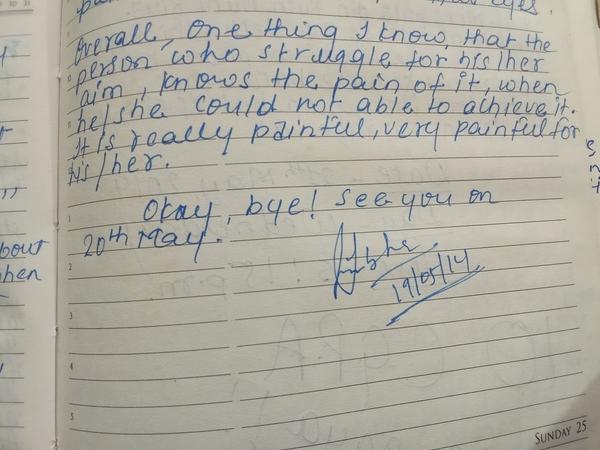 eyes.
Overall, one thing I know, that the
person who struggle for his/her
aim, knows the pain of it, when
he/she could not able to achieve it.
It is really painful, very painful for
his/her.
Okay, bye! see you on
20th May.
19/05/14
bout
hen
1
2
3
4
5
SUNDAY 25